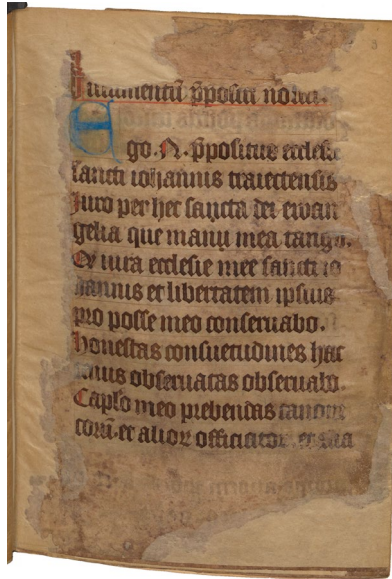 Iuramentū p̄positi noui⸱
Ego⸱ N⸱ p̄positus ecclesie
sancti iohannis traiectensis
Iuro per hec sancta dei ewan
gelia que manu mea tango⸱
Qꝫ iura ecclesie mee sancti io
hannis et libertatem ipsius
pro posse meo conseruabo⸱
honestas consuetudines hac
tenus obseruatas obseruabo⸱
Caplo meo prebendas canoni
corū⸱ et alior officiatorū